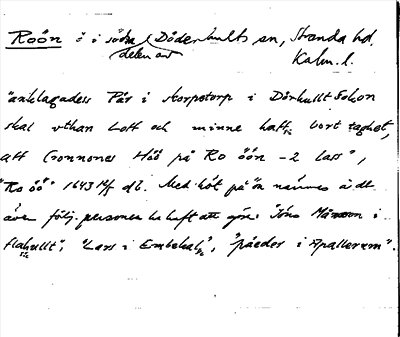 Roön ö i södra delen av Döderhults sn, Stranda hd.
Kalm. l.
"anklagades Pär i Korpetorp i Dörhullt Sokon
skal vthan Loff och minne haffu bort taghet,
att Cronnones Höö på Ro öön - 2 lass",
"Ro öö" 1643 db. Med höt på ön nämnes a dt
även följ. personer ha haft att göra: "Jöns Månsson i
Flahullt", "Lars i Emkehal", "påeder i Apallerum".